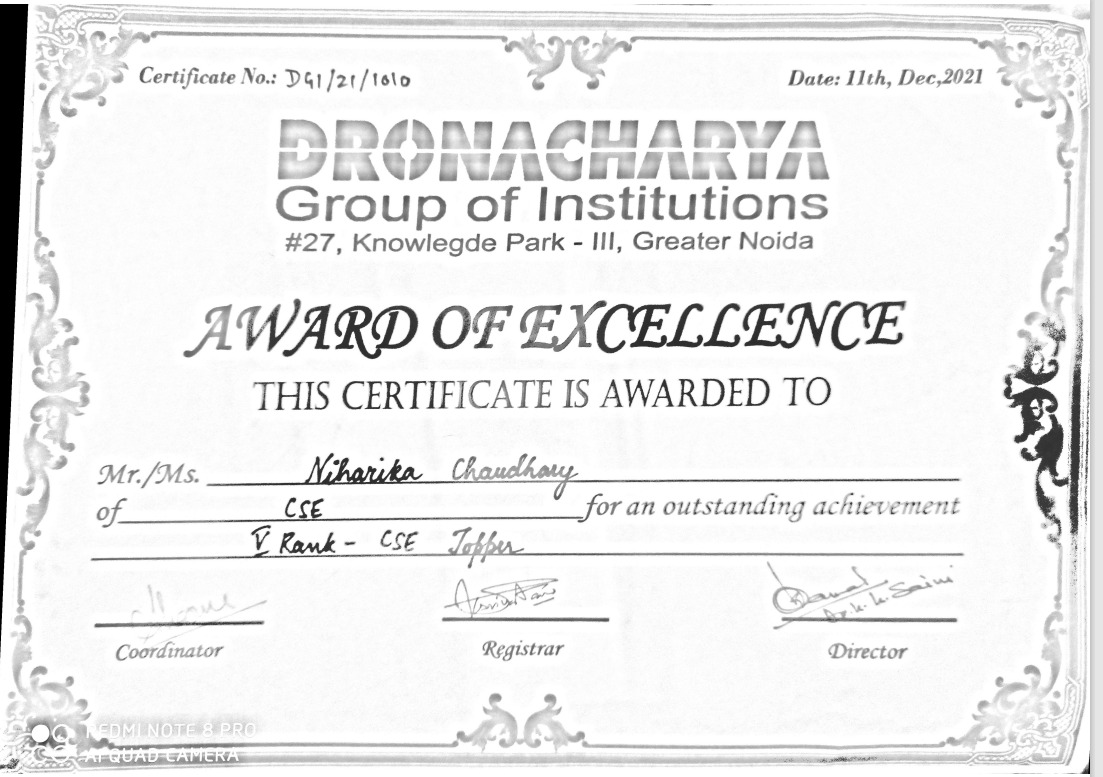 Certificate No.: DGI/21/1010
Date: 11th, Dec,2021
DRONACHARYA
Group of Institutions
#27, Knowlegde Park - III, Greater Noida
AWARD OF EXCELLENCE
THIS CERTIFICATE IS AWARDED TO
Mr./Ms. Niharika Chaudhary
of CSE for an outstanding achievement
V Rank - CSE Topper
Coordinator
Registrar
Director
REDMI NOTE 8 PRO
AI QUAD CAMERA